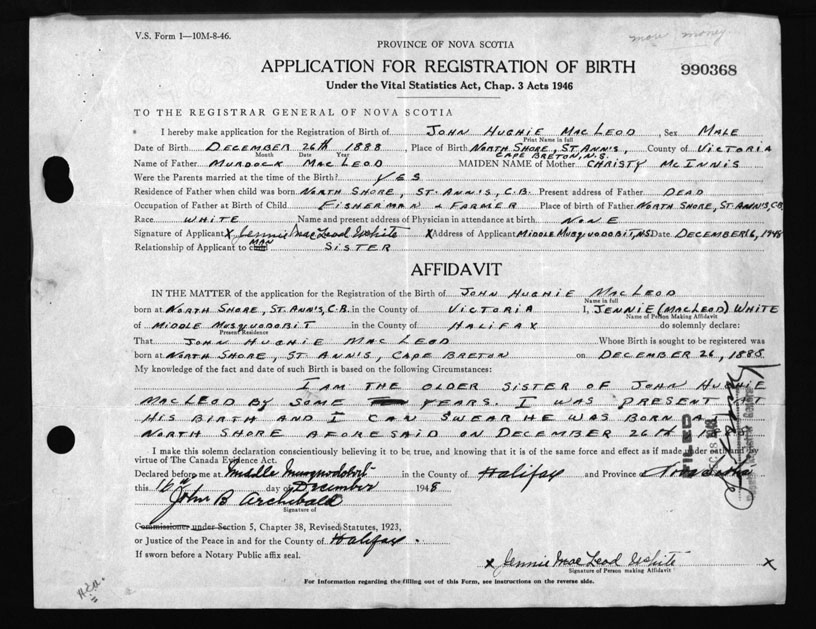 V.S. Form 1—10M-8-46.
more money
PROVINCE OF NOVA SCOTIA
APPLICATION FOR REGISTRATION OF BIRTH
990368
Under the Vital Statistics Act, Chap. 3 Acts 1946
TO THE REGISTRAR GENERAL OF NOVA SCOTIA
I hereby make application for the Registration of Birth of JOHN HUGHIE MACLEOD, Sex MALE
Print Name in full
Date of Birth DECEMBER 26th 1888, Place of Birth NORTH SHORE, ST. ANN'S, County of VICTORIA
Month Date Year CAPE BRETON, N.S.
Name of Father MURDOCK MACLEOD MAIDEN NAME of Mother CHRISTY MCINNIS
Were the Parents married at the time of the Birth? YES
Residence of Father when child was born NORTH SHORE, ST. ANN'S, C.B. Present address of Father DEAD
Occupation of Father at Birth of Child FISHERMAN & FARMER Place of birth of Father NORTH SHORE, ST. ANN'S, C.B.
Race WHITE Name and present address of Physician in attendance at birth NONE
Signature of Applicant X Jennie MacLeod White X Address of Applicant MIDDLE MUSQUODOBIT, N.S. Date DECEMBER 16, 1948
MAN
Relationship of Applicant to SISTER
AFFIDAVIT
IN THE MATTER of the application for the Registration of the Birth of JOHN HUGHIE MACLEOD
Name in full
born at NORTH SHORE, ST. ANN'S, C.B. in the County of VICTORIA I, JENNIE (MACLEOD) WHITE
Name of Person Making Affidavit
of MIDDLE MUSQUODOBIT in the County of HALIFAX do solemnly declare:
Present Residence
That JOHN HUGHIE MACLEOD Whose Birth is sought to be registered was
born at NORTH SHORE, ST. ANN'S, CAPE BRETON on DECEMBER 26, 1888.
My knowledge of the fact and date of such Birth is based on the following Circumstances:
I AM THE OLDER SISTER OF JOHN HUGHIE
MACLEOD BY SOME YEARS. I WAS PRESENT AT
HIS BIRTH AND I CAN SWEAR HE WAS BORN AT
NORTH SHORE AFORESAID ON DECEMBER 26th
FILED
I make this solemn declaration conscientiously believing it to be true, and knowing that it is of the same force and effect as if made under oath and by
virtue of The Canada Evidence Act.
Declared before me at Middle Musquodobit in the County of Halifax and Province of Nova Scotia
this 16th day of December 1948
John B Archibald
Signature of
Commissioner under Section 5, Chapter 38, Revised Statutes, 1923,
or Justice of the Peace in and for the County of Halifax.
If sworn before a Notary Public affix seal.
X Jennie MacLeod White X
Signature of Person making Affidavit
For Information regarding the filling out of this Form, see instructions on the reverse side.